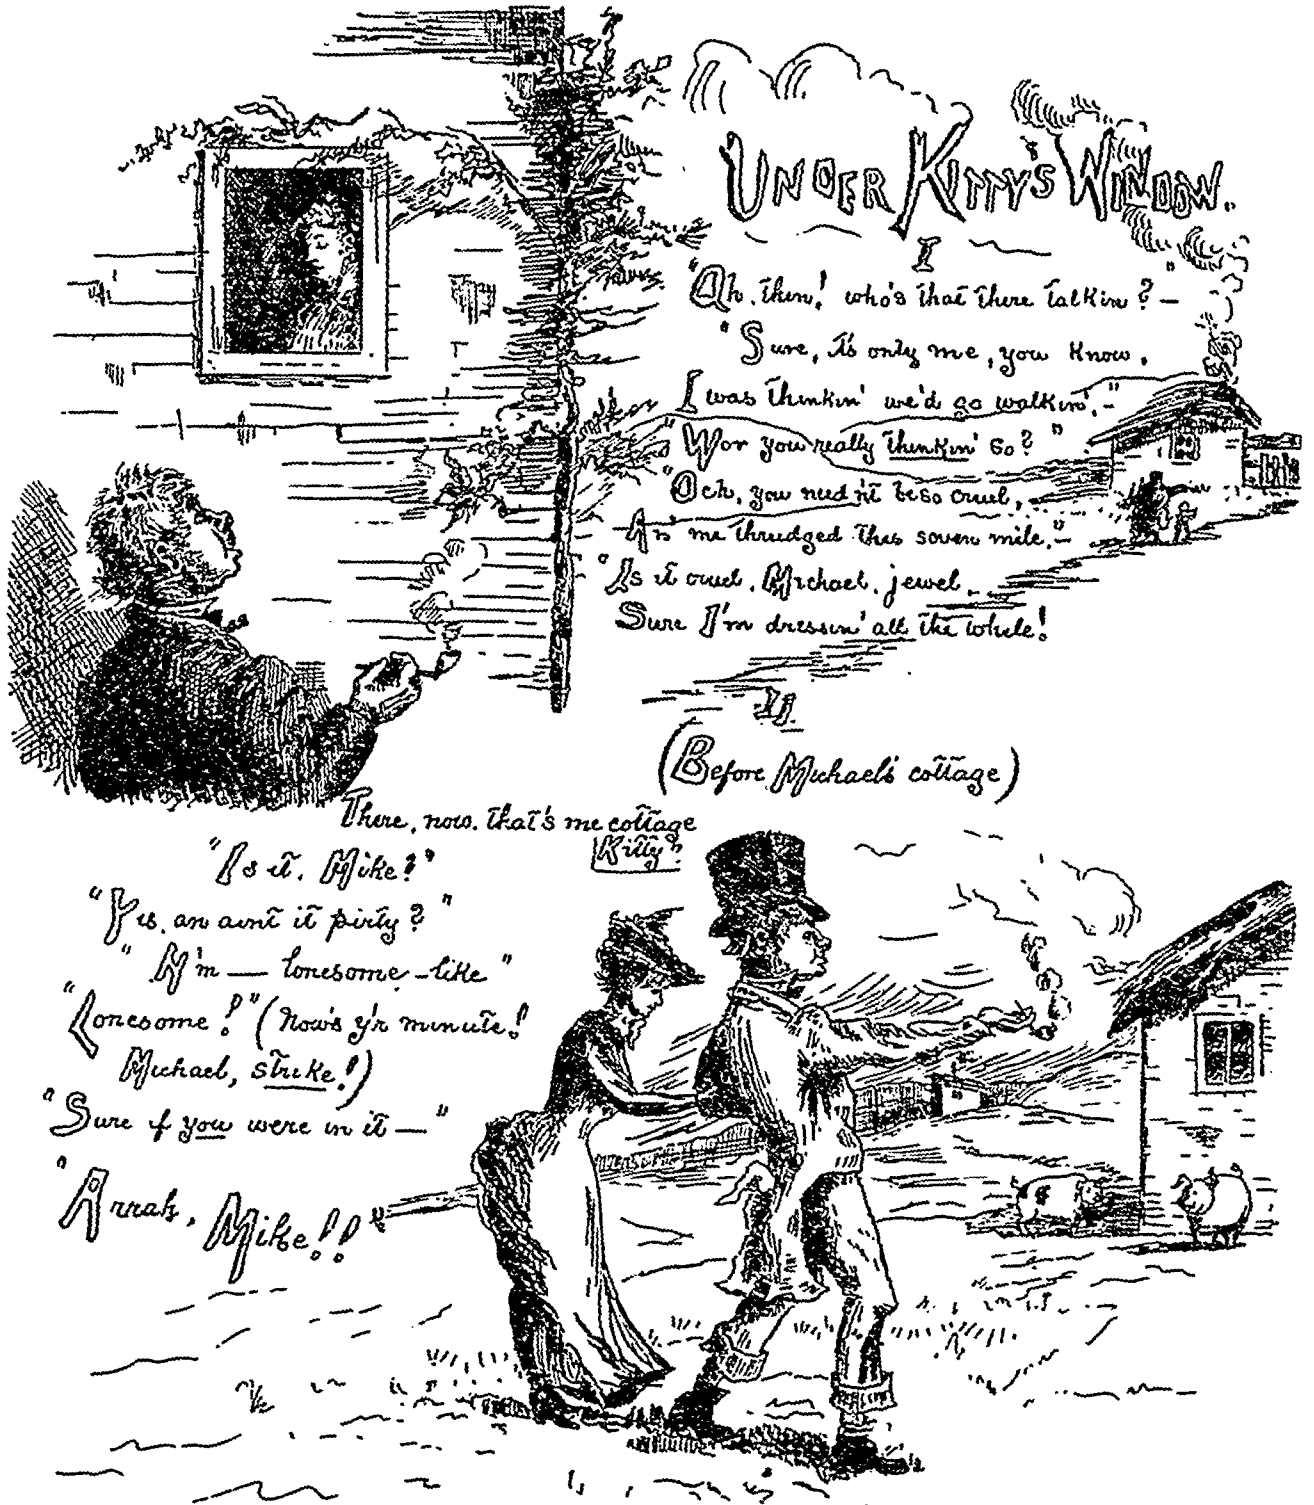 UNDER KITTY'S WINDOW.
I
"Ah, then! who's that there talkin?"—
"Sure, it's only me, you know.
I was thinkin' we'd go walkin'."—
"Wor you really thinkin' so?"
"Och, you needn't be so cruel,
An me thrudged this seven mile."—
"Is it cruel, Michael, jewel,
Sure I'm dressin' all the while!
II
(Before Michael's cottage)
There, now, that's me cottage
Kitty"
"Is it, Mike?"
"Yis, an aint it pirty?"
"N'm — lonesome-like"
"Lonesome!" (Now's y'r minute!
Michael, strike!)
"Sure if you were in it—"
"Arrah, Mike!!"